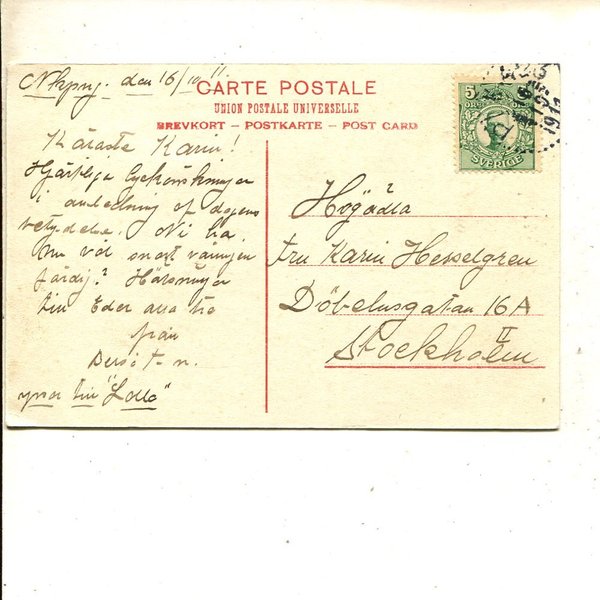 Nkpng. den 16/10 11.
CARTE POSTALE
UNION POSTALE UNIVERSELLE
BREVKORT – POSTKARTE – POST CARD
Käraste Karin!
Hjärtliga lyckönskningar
i anledning af dagens
betydelse. Ni ha
nu väl snart våningen
färdig? Hälsningar
till Eder alla tre
från
1911
5
ÖRE
ÖRE
SVERIGE
Högädla
Fru Karin Hesselgren
Döbelnsgatan 16A
II
Stockholm